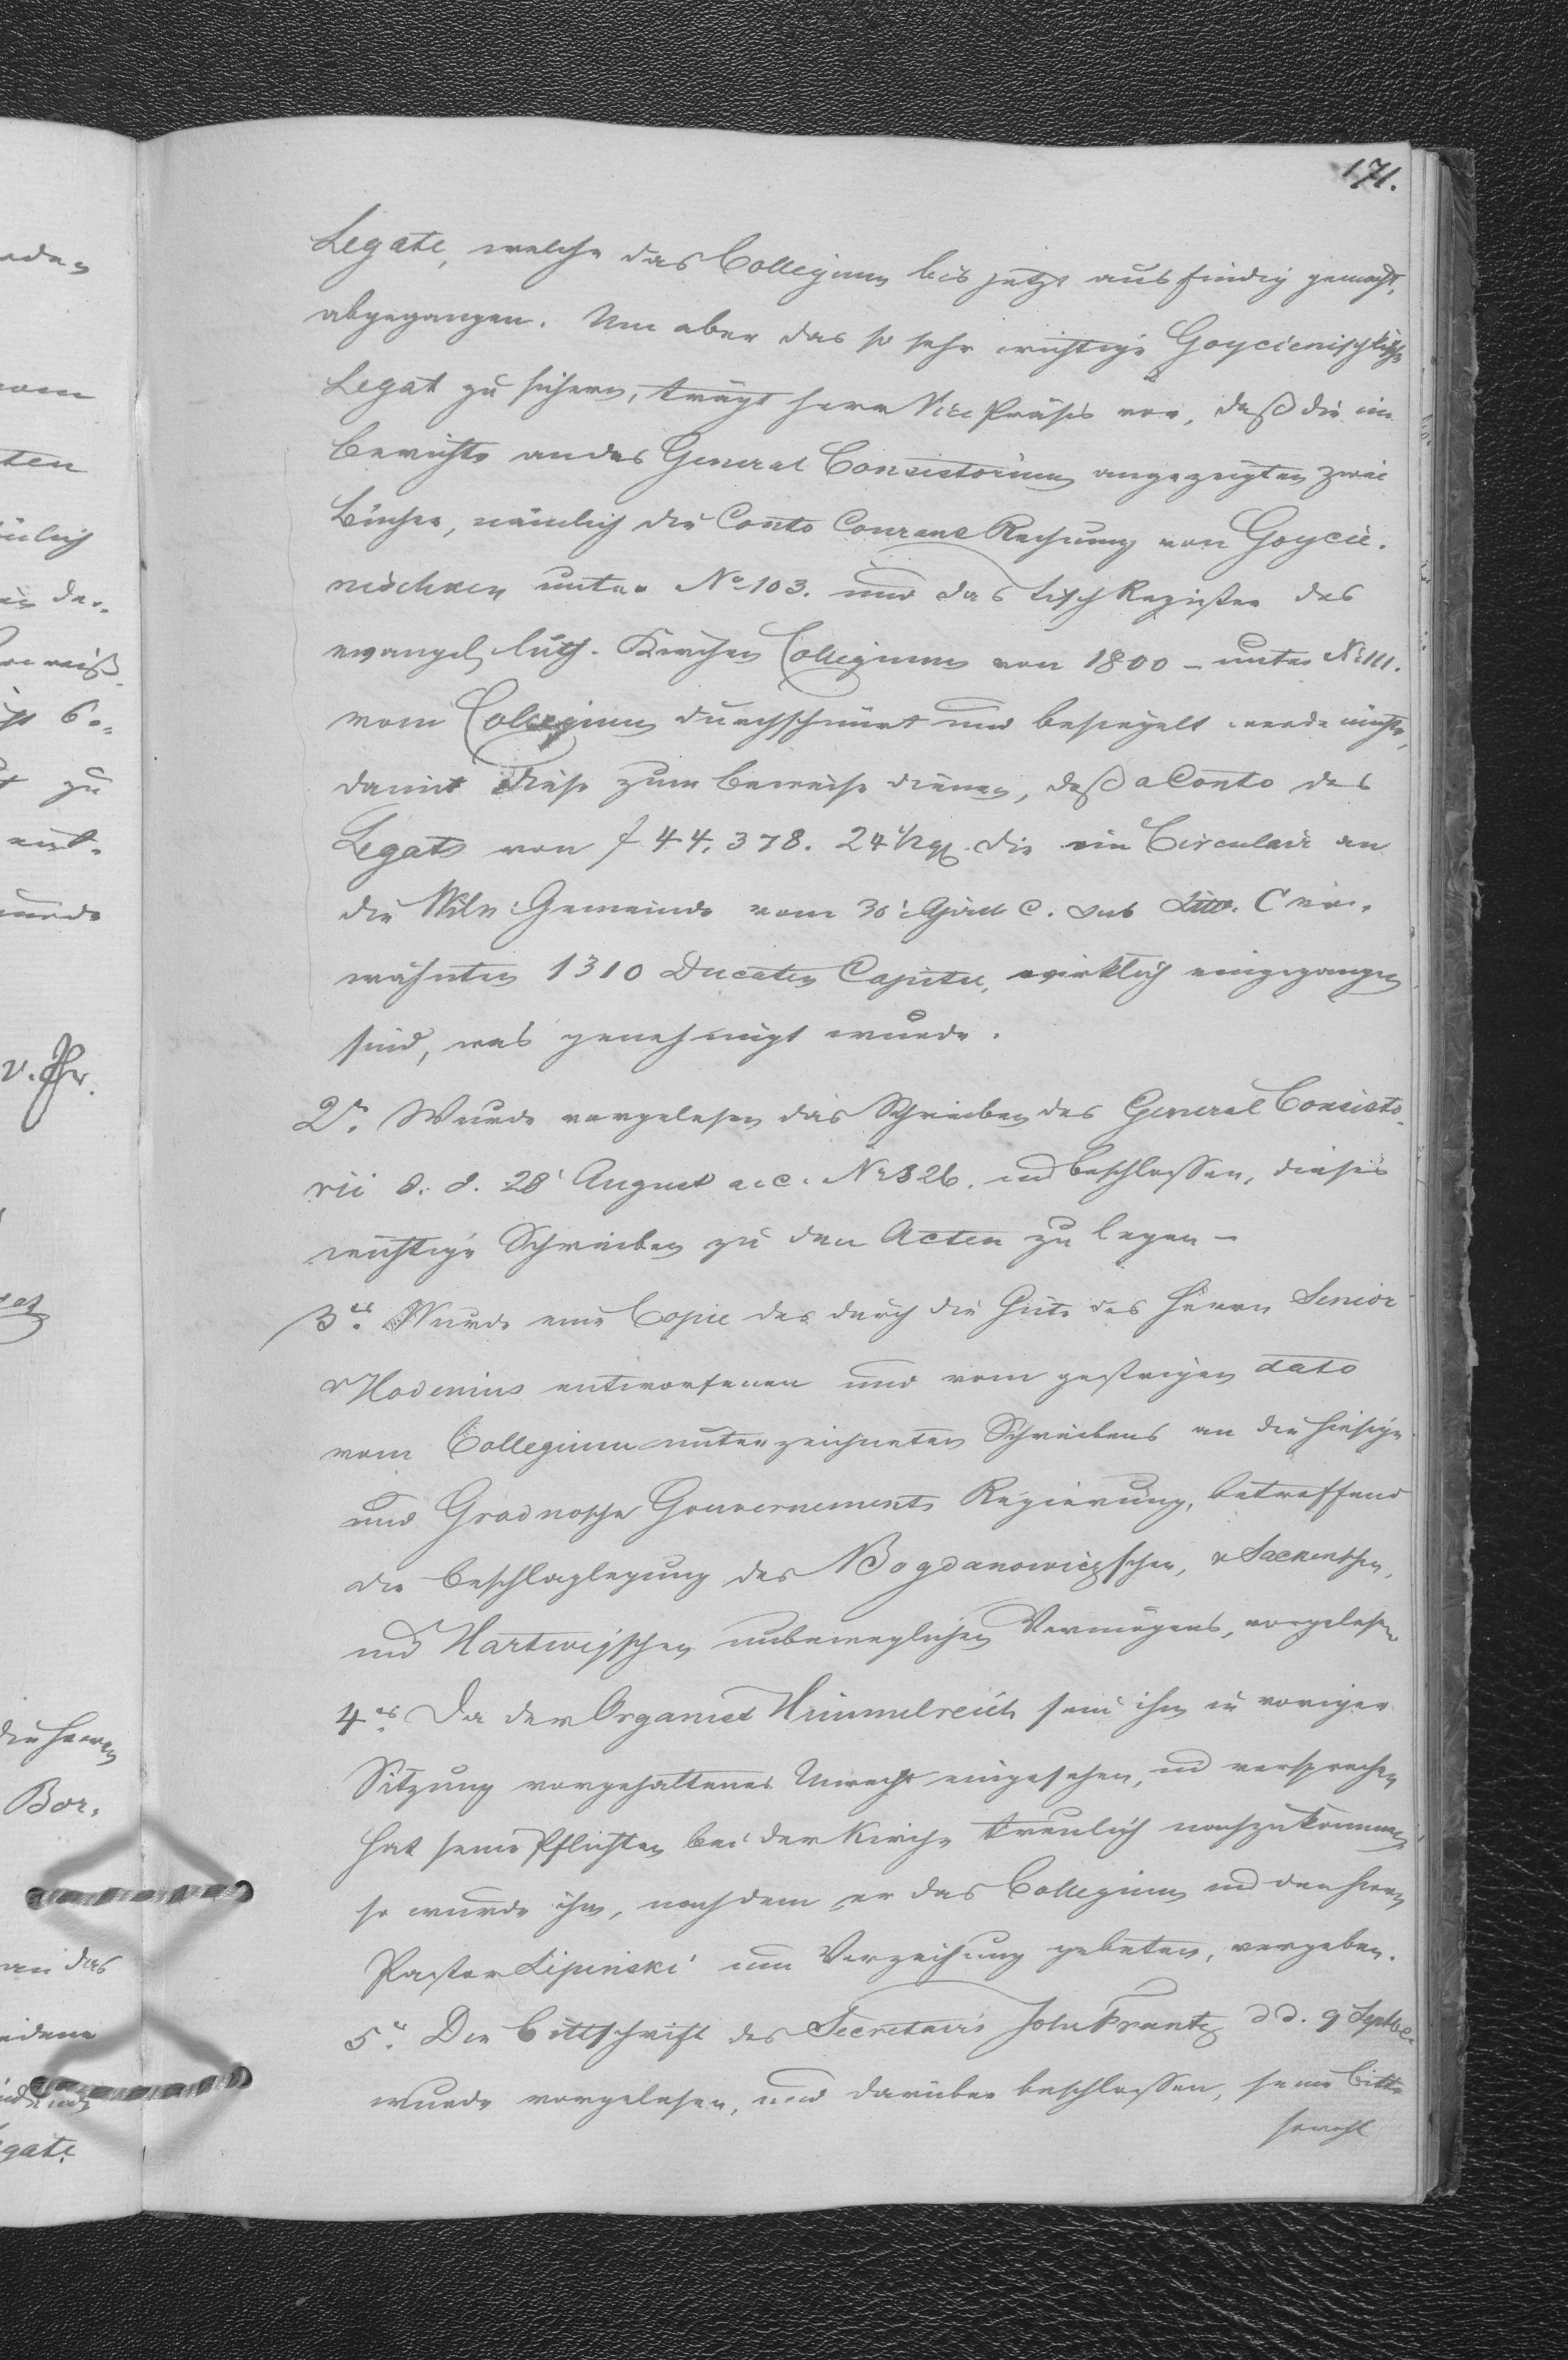 171.
Legate, welche das Collegium bis jetzt ausfindig gemacht,
abgegangen. Um aber das so sehr wichtige
Legat zu sichern, trägt Herr Vice Präses vor, daß die im
Berichte an das General Consistorium angezeigten zwei
Bücher, nämlich die Conto Courant Rechnung von Goycie-
nischken unter No 103. und das Tisch Register des
evangel. luth. Kirchen Collegiums von 1800 – unter No 111.
vom Collegium durchschnürt und besiegelt werde müsste,
damit diese zum Beweise dienen, daß a Conto des
Legats von f 44,378. 24 1/2 gl. die im Circulair an
die Wiln: Gemeinde vom 30' April c. sub Litt. C er-
wähnten 1310 Ducaten Capital, wirklich eingegangen
sind, was genehmigt wurde.
2. Wurde vorgelesen das Schreiben des General Consisto-
rii d. d. 28' August a. c. No 326. und beschlossen, dieses
wichtige Schreiben zu den Acten zu legen –
3. Wurde eine Copie des durch die Güte des Herrn Senior
v Hodenius entworfenen und vom gestrigen dato
vom Collegium unterzeichneten Schreibens an die hiesige
und Grodnosche Gouvernements Regierung, betreffend
die Beschlaglegung des Bogdanowiczschen, v Sackenschen,
und Hartwigschen unbeweglichen Vermögens, vorgelesen
4. Da der Organist Himmelreich sein ihm in voriger
Sitzung vorgehaltenes Unrecht eingesehen, und versprochen
hat seine Pflichten bei der Kirche treulich nachzukommen
so wurde ihm, nachdem er das Collegium und den Herrn
Pastor Lipinski um Verzeihung gebeten, vergeben.
5. Die Bittschrift des Secretairs John Frantz d d. 9 Septbr c.
wurde vorgelesen, und darüber beschlossen, seine Bitte
sowohl